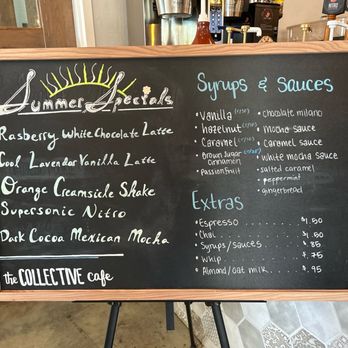 Summer Specials
Rasberry White Chocolate Latte
Cool Lavender Vanilla Latte
Orange Creamsicle Shake
Supersonic Nitro
Dark Cocoa Mexican Mocha
the COLLECTIVE cafe
Syrups & Sauces
• Vanilla
• hazelnut
• Caramel
• Brown Sugar cinnamon
• Passionfruit
• chocolate milano
• mocha sauce
• Caramel sauce
• white mocha sauce
• salted caramel
• peppermint
• gingerbread
Extras
• Espresso $1.50
• Chai $1.50
• Syrups/sauces $.85
• Whip $.75
• Almond/oat milk $.95